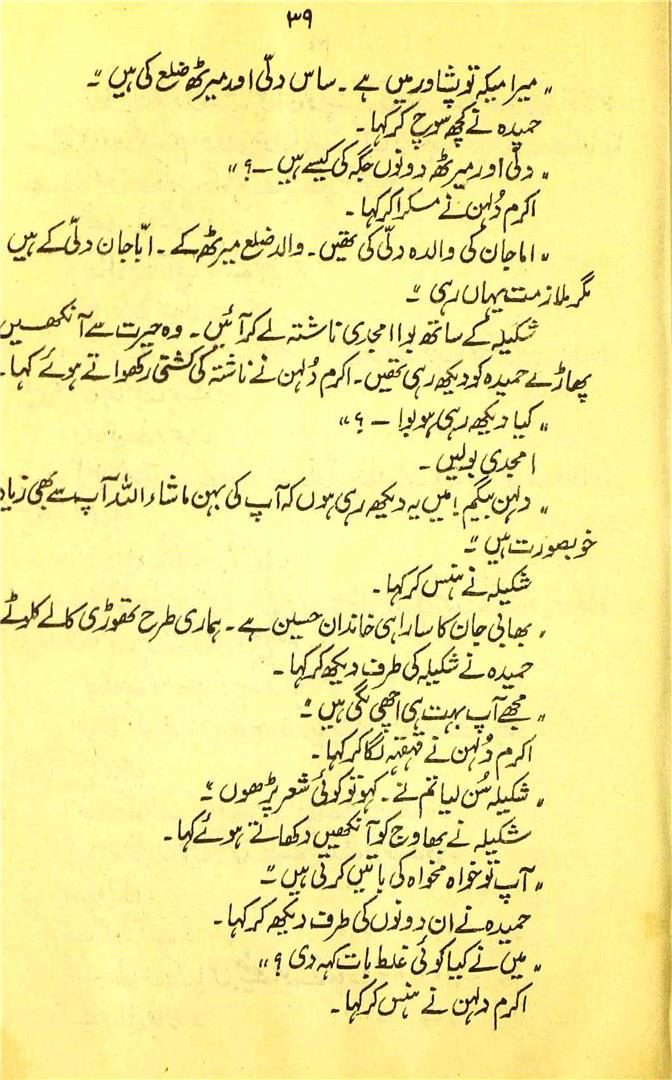 ۳۹
"میرا میکہ تو پشاور میں ہے۔ ساس دلّی اور میرٹھ ضلع کی ہیں"۔
حمیدہ نے کچھ سوچ کر کہا۔
"دلّی اور میرٹھ دونوں جگہ کی کیسے ہیں ـ؟"
اکرم دُلہن نے مسکرا کر کہا۔
"اماجان کی والدہ دلّی کی تھیں۔ والد ضلع میرٹھ کے۔ ابّا جان دلّی کے ہیں
مگر ملازمت یہاں رہی"۔
شکیلہ کے ساتھ بوا امجدی ناشتہ لے کر آئیں۔ وہ حیرت سے آنکھیں
پھاڑے حمیدہ کو دیکھ رہی تھیں۔ اکرم دُلہن نے ناشتہ کی کشتی رکھواتے ہوئے کہا۔
"کیا دیکھ رہی ہو بوا ـ؟"
امجدی بولیں۔
"دلہن بیگم! میں یہ دیکھ رہی ہوں کہ آپ کی بہن ماشاء اللہ آپ سے بھی زیاد
خوبصورت ہیں"۔
شکیلہ نے ہنس کر کہا۔
"بھابی جان کا سارا ہی خاندان حسین ہے۔ ہماری طرح تھوڑی کالے کلوٹے
حمیدہ نے شکیلہ کی طرف دیکھ کر کہا۔
"مجھے آپ بہت ہی اچھی لگی ہیں"۔
اکرم دُلہن نے قہقہہ لگا کر کہا۔
"شکیلہ سُن لیا تم نے۔ کہو تو کوئی شعر پڑھوں"۔
شکیلہ نے بھاوج کو آنکھیں دکھاتے ہوئے کہا۔
"آپ تو خواہ مخواہ کی باتیں کرتی ہیں"۔
حمیدہ نے ان دونوں کی طرف دیکھ کر کہا۔
"میں نے کیا کوئی غلط بات کہہ دی؟"
اکرم دلہن نے ہنس کر کہا۔